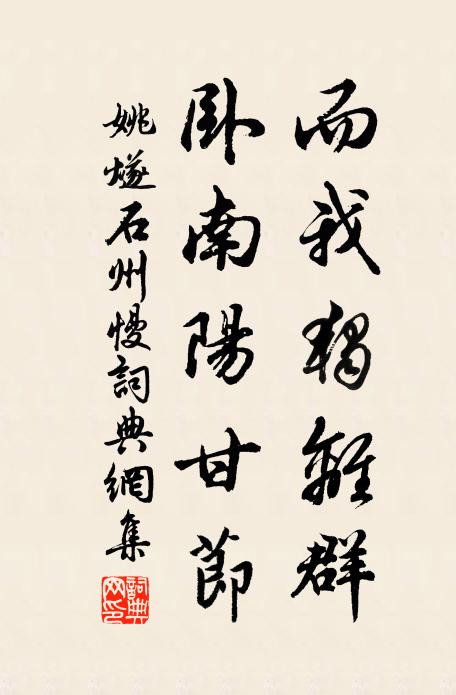 而我獨離群
臥南陽甘節
姚燧石州慢詞典網集
詞典网印